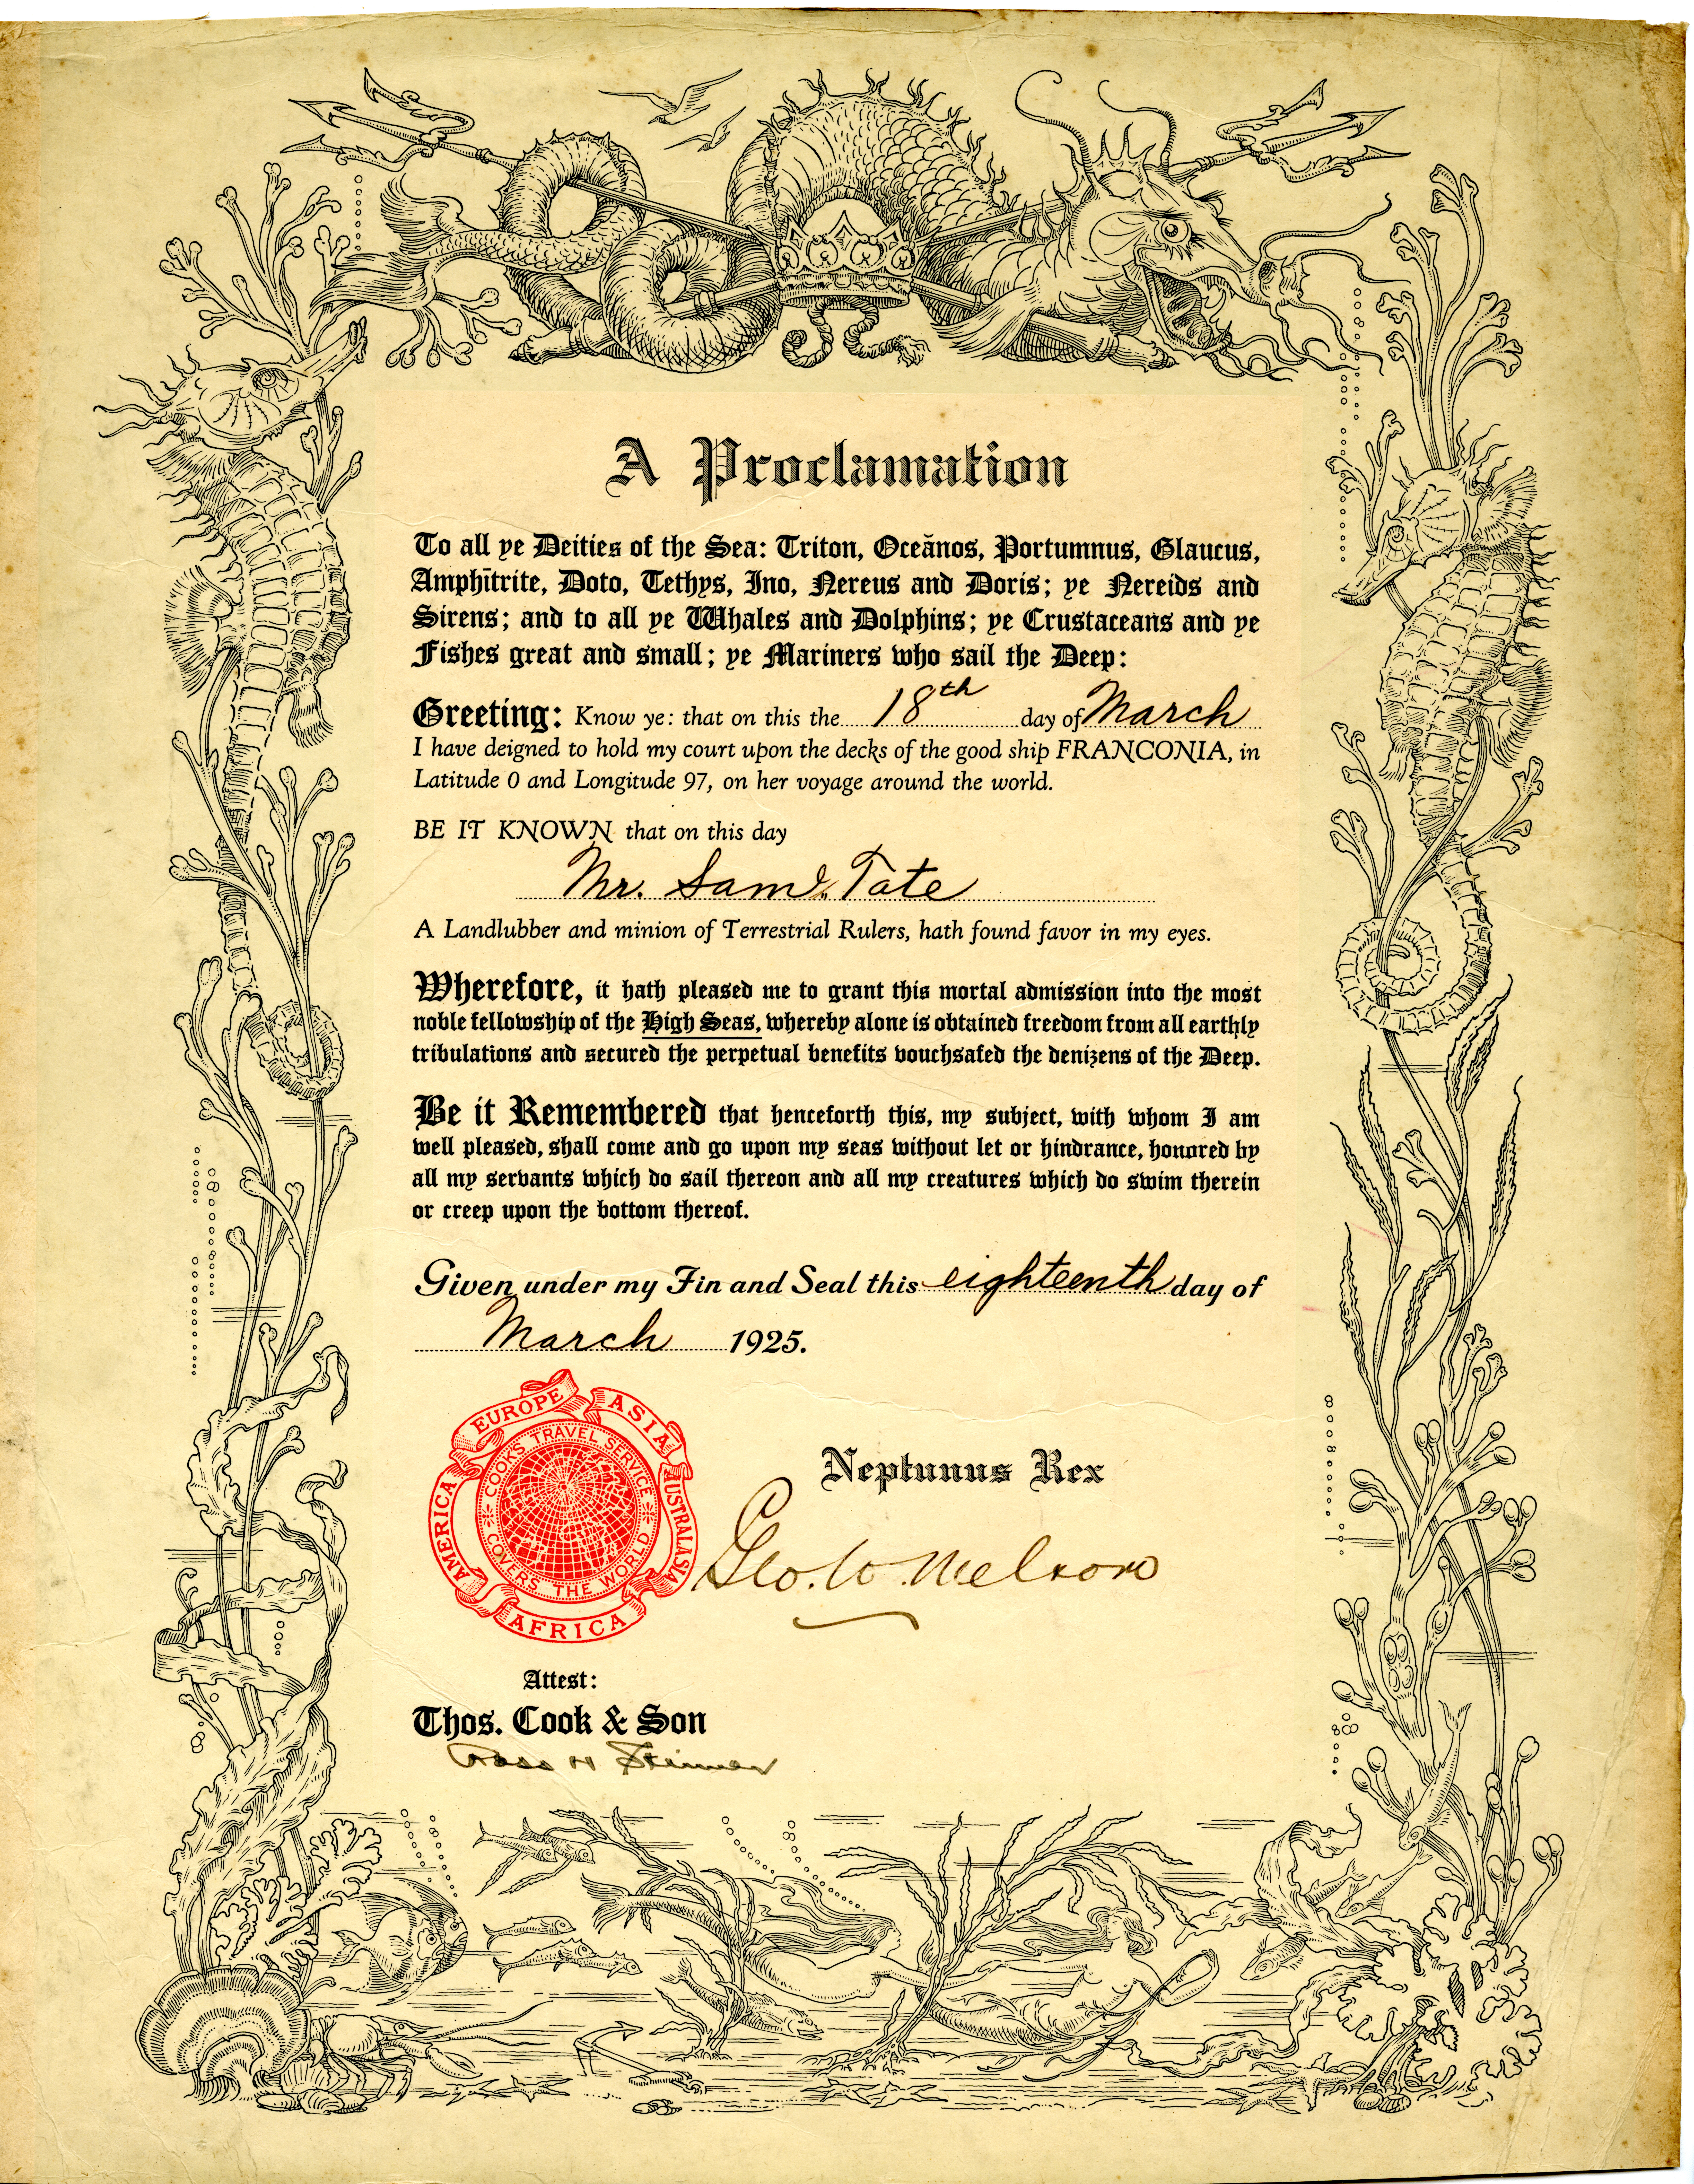 A Proclamation
To all ye Deities of the Sea: Triton, Oceānos, Portumnus, Glaucus,
Amphītrite, Doto, Tethys, Ino, Nereus and Doris; ye Nereids and
Sirens; and to all ye Whales and Dolphins; ye Crustaceans and ye
Fishes great and small; ye Mariners who sail the Deep:
Greeting: Know ye: that on this the 18th day of March
I have deigned to hold my court upon the decks of the good ship FRANCONIA, in
Latitude 0 and Longitude 97, on her voyage around the world.
BE IT KNOWN that on this day
Mr. Saml. Tate
A Landlubber and minion of Terrestrial Rulers, hath found favor in my eyes.
Wherefore, it hath pleased me to grant this mortal admission into the most
noble fellowship of the High Seas, whereby alone is obtained freedom from all earthly
tribulations and secured the perpetual benefits vouchsafed the denizens of the Deep.
Be it Remembered that henceforth this, my subject, with whom I am
well pleased, shall come and go upon my seas without let or hindrance, honored by
all my servants which do sail thereon and all my creatures which do swim therein
or creep upon the bottom thereof.
Given under my Fin and Seal this eighteenth day of
March 1925.
EUROPE ASIA AUSTRALASIA AFRICA AMERICA
COOKS TRAVEL SERVICE
COVERS THE WORLD
Neptunus Rex
Geo. W. Melsom
Attest:
Thos. Cook & Son
Ross H Steimer